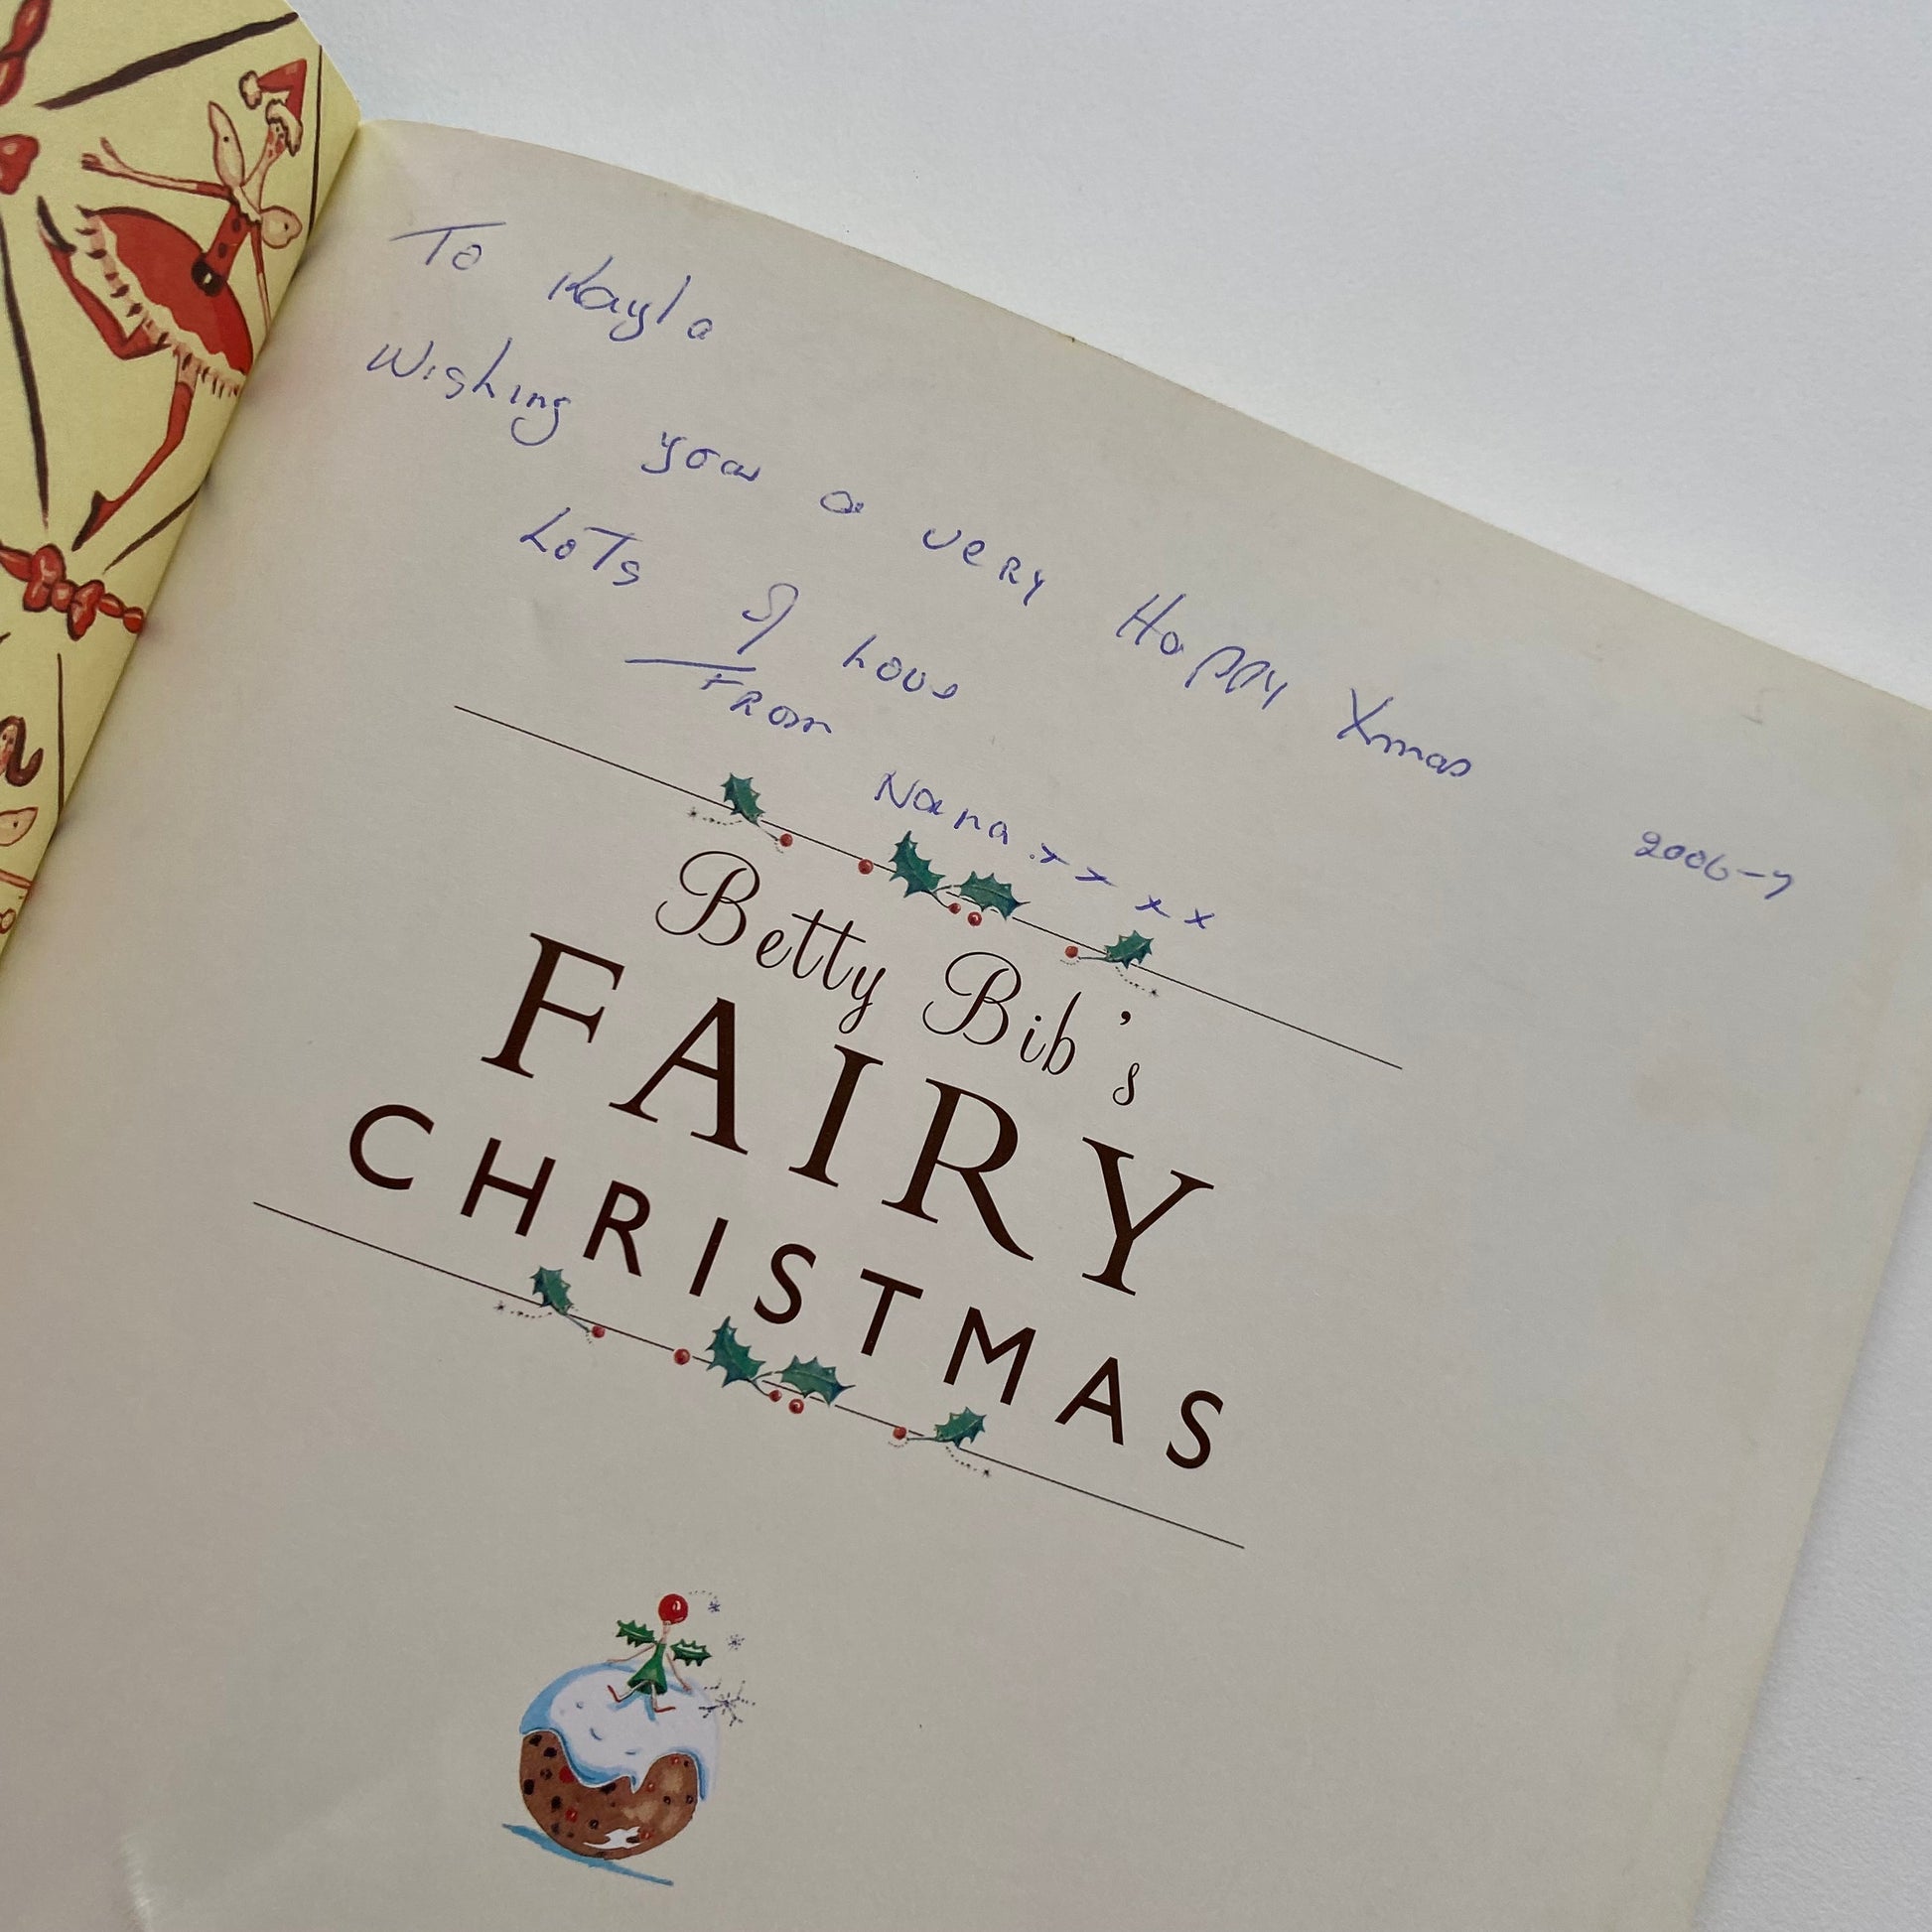 To Kayla
Wishing you a very Happy Xmas
2006-7
Lots of Love
From
Nana xxxx
Betty Bib's
FAIRY
CHRISTMAS